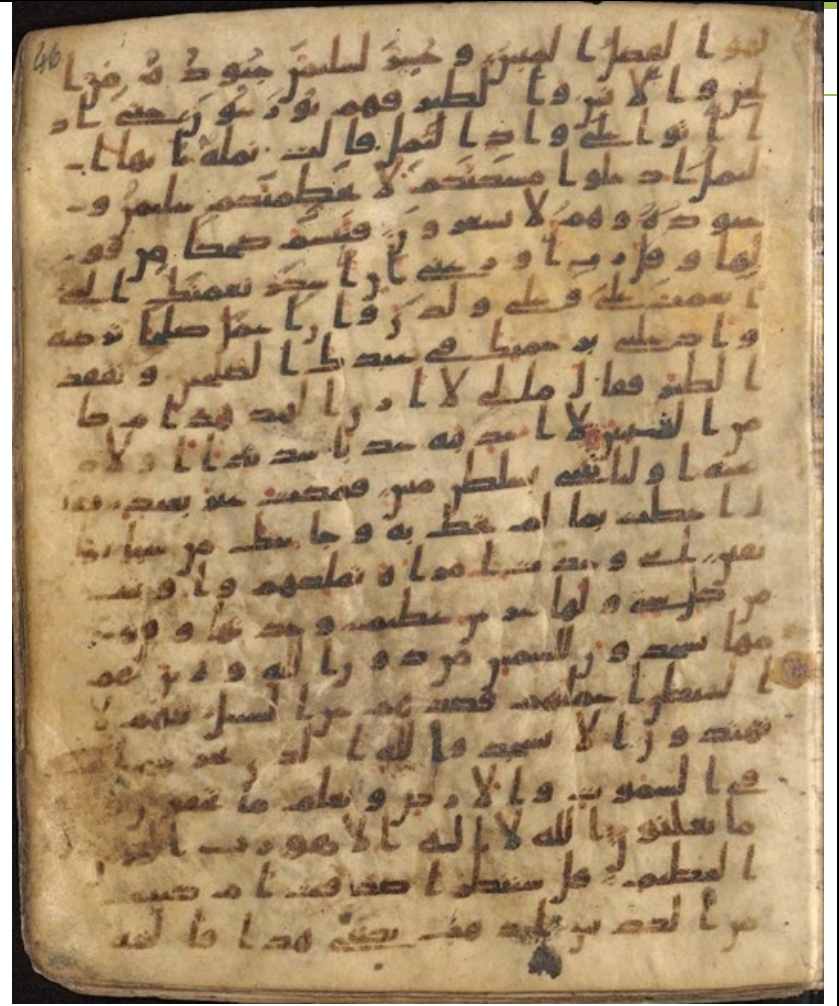 46
لهو الفضل المبين و حشر لسليمن جنوده من ا
لجن والانس والطير فهم يوزعون حتى اذ
ا اتوا على واد النمل قالت نملة يايها ا
لنمل ادخلوا مسكنكم لا يحطمنكم سليمن و
جنوده وهم لا يشعرون فتبسم ضحكا من قو
لها وقل رب اوزعنى ان اشكر نعمتك التى
انعمت على وعلى ولدى وان اعمل صلحا ترضيه
وادخلنى برحمتك فى عبدك الصلحين وتفقد
الطير فقال ما لى لا ارى الهدهد ام كا
من الغئبين لا عذبنه عذبا شديدا او لاذ
بحنه او لياتينى بسلطن مبين فمكث غير بعيد فقا
ل احطت بما لم تحط به وجئتك من سبا بنبا
يقين انى وجدت امراة تملكهم واوتيت
من كل شى ولها عرش عظيم وجدتها وقو
مها يسجدون للشمس من دون الله وزين لهم
الشيطن اعملهم فصدهم عن السبيل فهم لا
يهتدون الا يسجدوا لله الذى يخرج
فى السموت والارض ويعلم ما تخفون
ما تعلنون الله لا اله الا هو رب العر
العظيم قل سننظر اصدقت ام كنت
من الكذبين اذهب بكتبى هذا فالقه